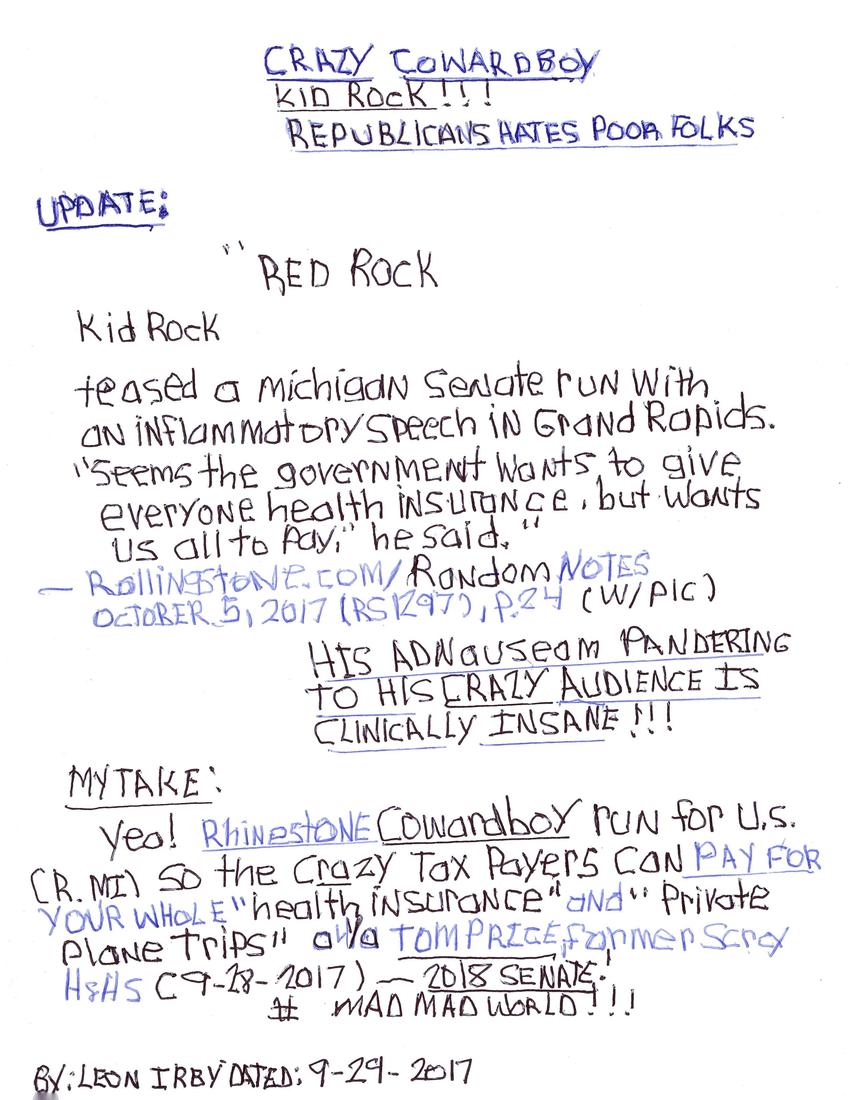 CRAZY COWARDBOY
KID ROCK!!!
REPUBLICANS HATES POOR FOLKS
UPDATE:
" RED ROCK
Kid Rock
teased a michigan Senate run with
an inflammatory speech in Grand Rapids.
"Seems the government wants to give
everyone health insurance, but wants
us all to pay," he said."
— Rollingstone.com/Random NOTES
OCTOBER 5, 2017 (RS1297), P.24 (W/PIC)
HIS ADNauseam PANDERING
TO HIS CRAZY AUDIENCE IS
CLINICALLY INSANE!!!
MY TAKE:
Yea! RhinestONE Cowardboy run for U.S.
(R.MI) so the Crazy Tax Payers can PAY FOR
YOUR WHOLE "health insurance" and "Private
plane Trips" a'la TOM PRICE, former Scry
H&HS (9-28-2017) — 2018 SENATE!
# MAD MAD WORLD!!!
BY: LEON IRBY DATED: 9-29-2017